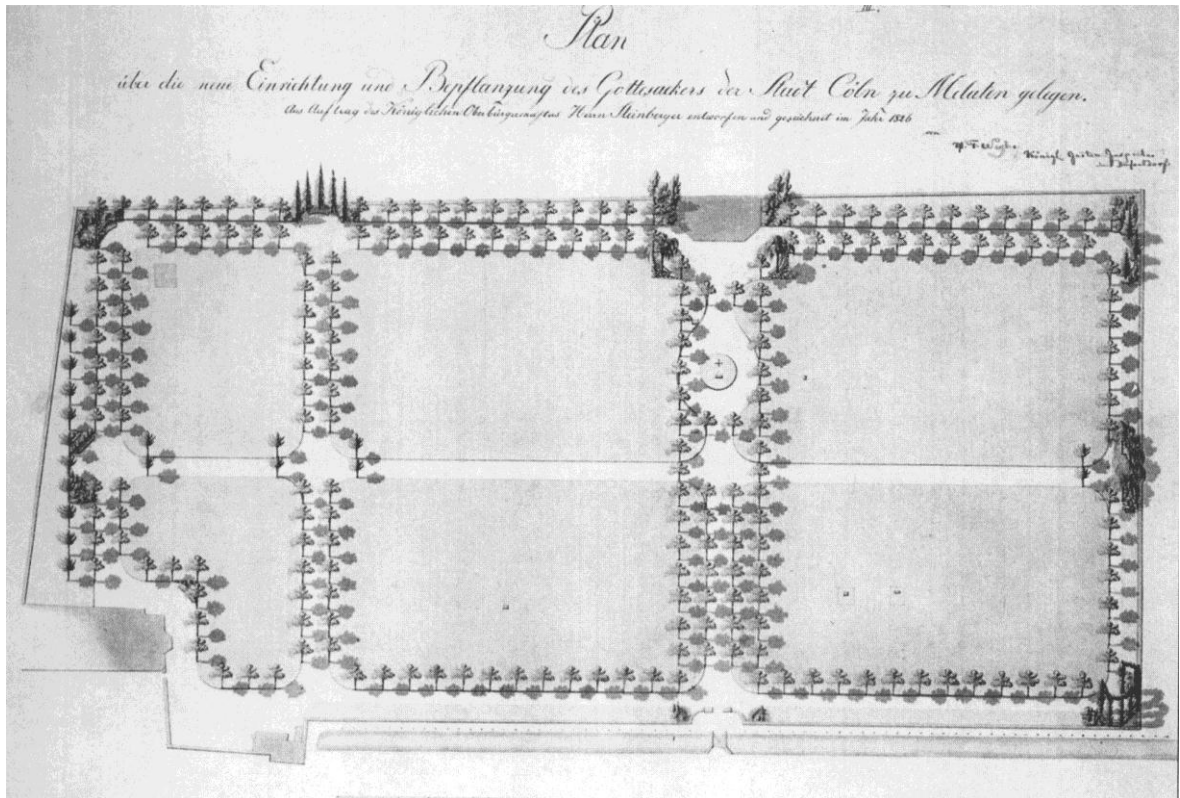 III.
Plan
über die neue Einrichtung und Bepflanzung des Gottesackers der Stadt Cöln zu Melaten gelegen.
Aus Auftrag des Königlichen Oberbürgermeisters Herrn Steinberger entworfen und gezeichnet im Jahr 1826
von
M. F. Weyhe Königl. Garten Inspector
in Düsseldorf.